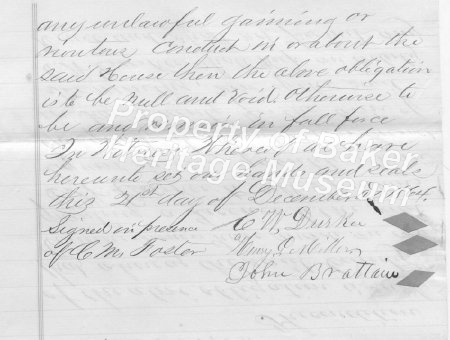 any unlawful gaming or
riotous conduct in or about the
said House then the above obligation
is to be Null and Void. Otherwise to
be and remain in full force
In Witness Whereof we have
hereunto set our hands and seals
this 21st day of December
Signed in presence
of C M Foster
C. W. Durkee
Henry
John Brattain
Property of Baker
Heritage Museum